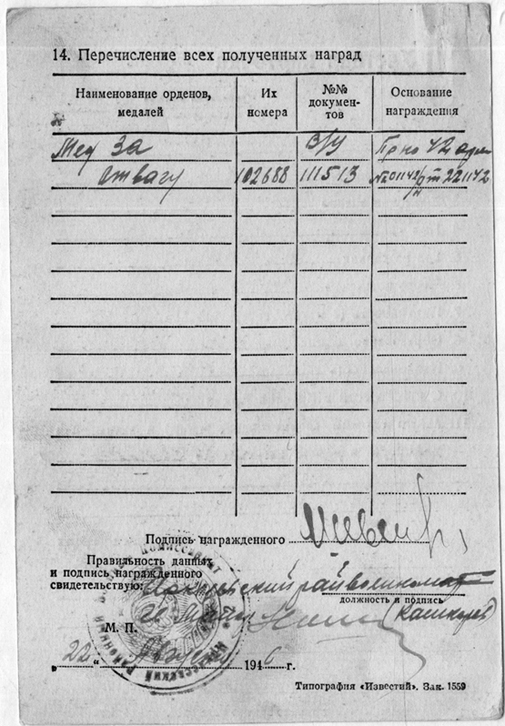 14. Перечисление всех полученных наград
Наименование орденов, медалей
Их номера
№№ документов
Основание награждения
Мед За В/У Пр по 42 арм
Отвагу 102688 111513 №01142/н от 221142
Подпись награжденного
Правильность данных
и подпись награжденного
свидетельствую райвоенкомат
должность и подпись
М. П.
„22“ 1946 г.
Типография «Известий». Зак. 1559